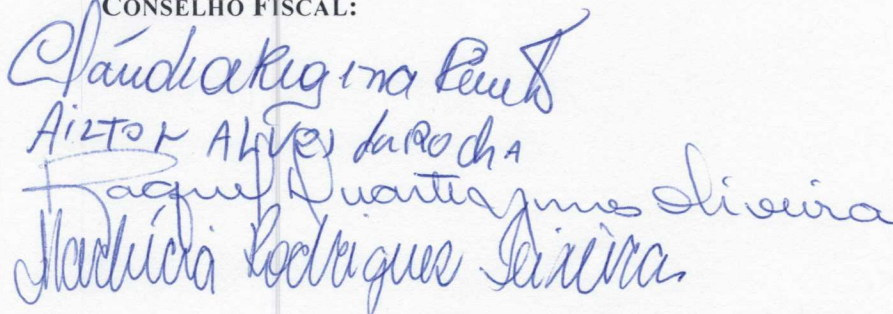 CONSELHO FISCAL:
Cláudia Regina
AiltoN ALVES da Rocha
Raquel Duarte Nunes Oliveira
Rodrigues Teixeira